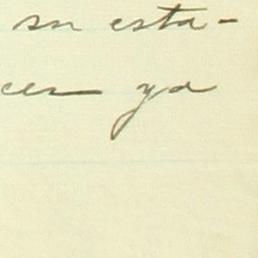 su esta-
cen ya